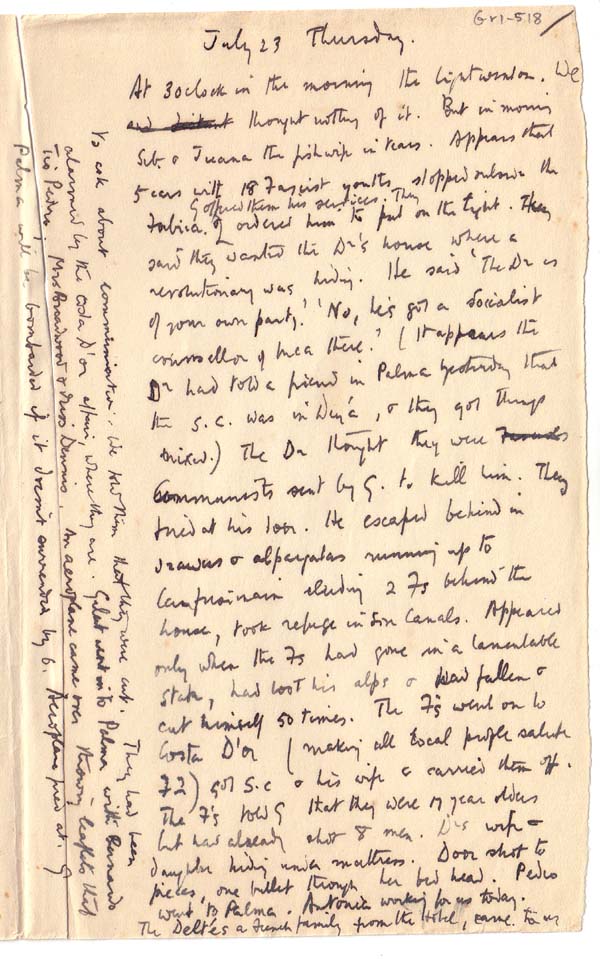 Gr1-518
July 23 Thursday.
At 3 oclock in the morning the light went on. We
and distant thought nothing of it. But in morning
Seb. & Juana the fishwife in tears. Appears that
5 cars with 18 Fascist youths stopped outside the
G offered them his services. They
Fabrica. & ordered him to put on the light. They
said they wanted the Dr's house where a
revolutionary was hiding. He said 'The Dr is
of your own party.' 'No, he's got a Socialist
counsellor of Inca there.' (It appears the
Dr had told a friend in Palma yesterday that
the S.C. was in Deyá, & they got things
mixed.) The Dr thought they were
Communists sent by G. to kill him. They
fired at his door. He escaped behind in
drawers & alpargatas running up to
eluding 2 Fs behind the
house, took refuge in Son Canals. Appeared
only when the Fs had gone in a lamentable
state, had lost his alps & had fallen &
cut himself 50 times. The Fs went on to
Costa D'or (making all local people salute
Fs) got S.C & his wife & carried them off.
The F's told G that they were 17 year olders
but had already shot 8 men. Dr's wife &
daughter hiding under mattress. Door shot to
pieces, one bullet through her bed head. Pedro
went to Palma. Antonia working for us today.
The Deltés a French family from the Hotel, came to us
to ask about communication: We told them that they were cut. They had been
alarmed by the Costa D'or affair, where they are. Gelat went in to Palma with Bernardo
Tio Pedro, Mrs Broadwood & Miss Dennis. An aeroplane came over throwing leaflets that
Palma will be bombarded if it doesn't surrender by 6. Aeroplane fired at.